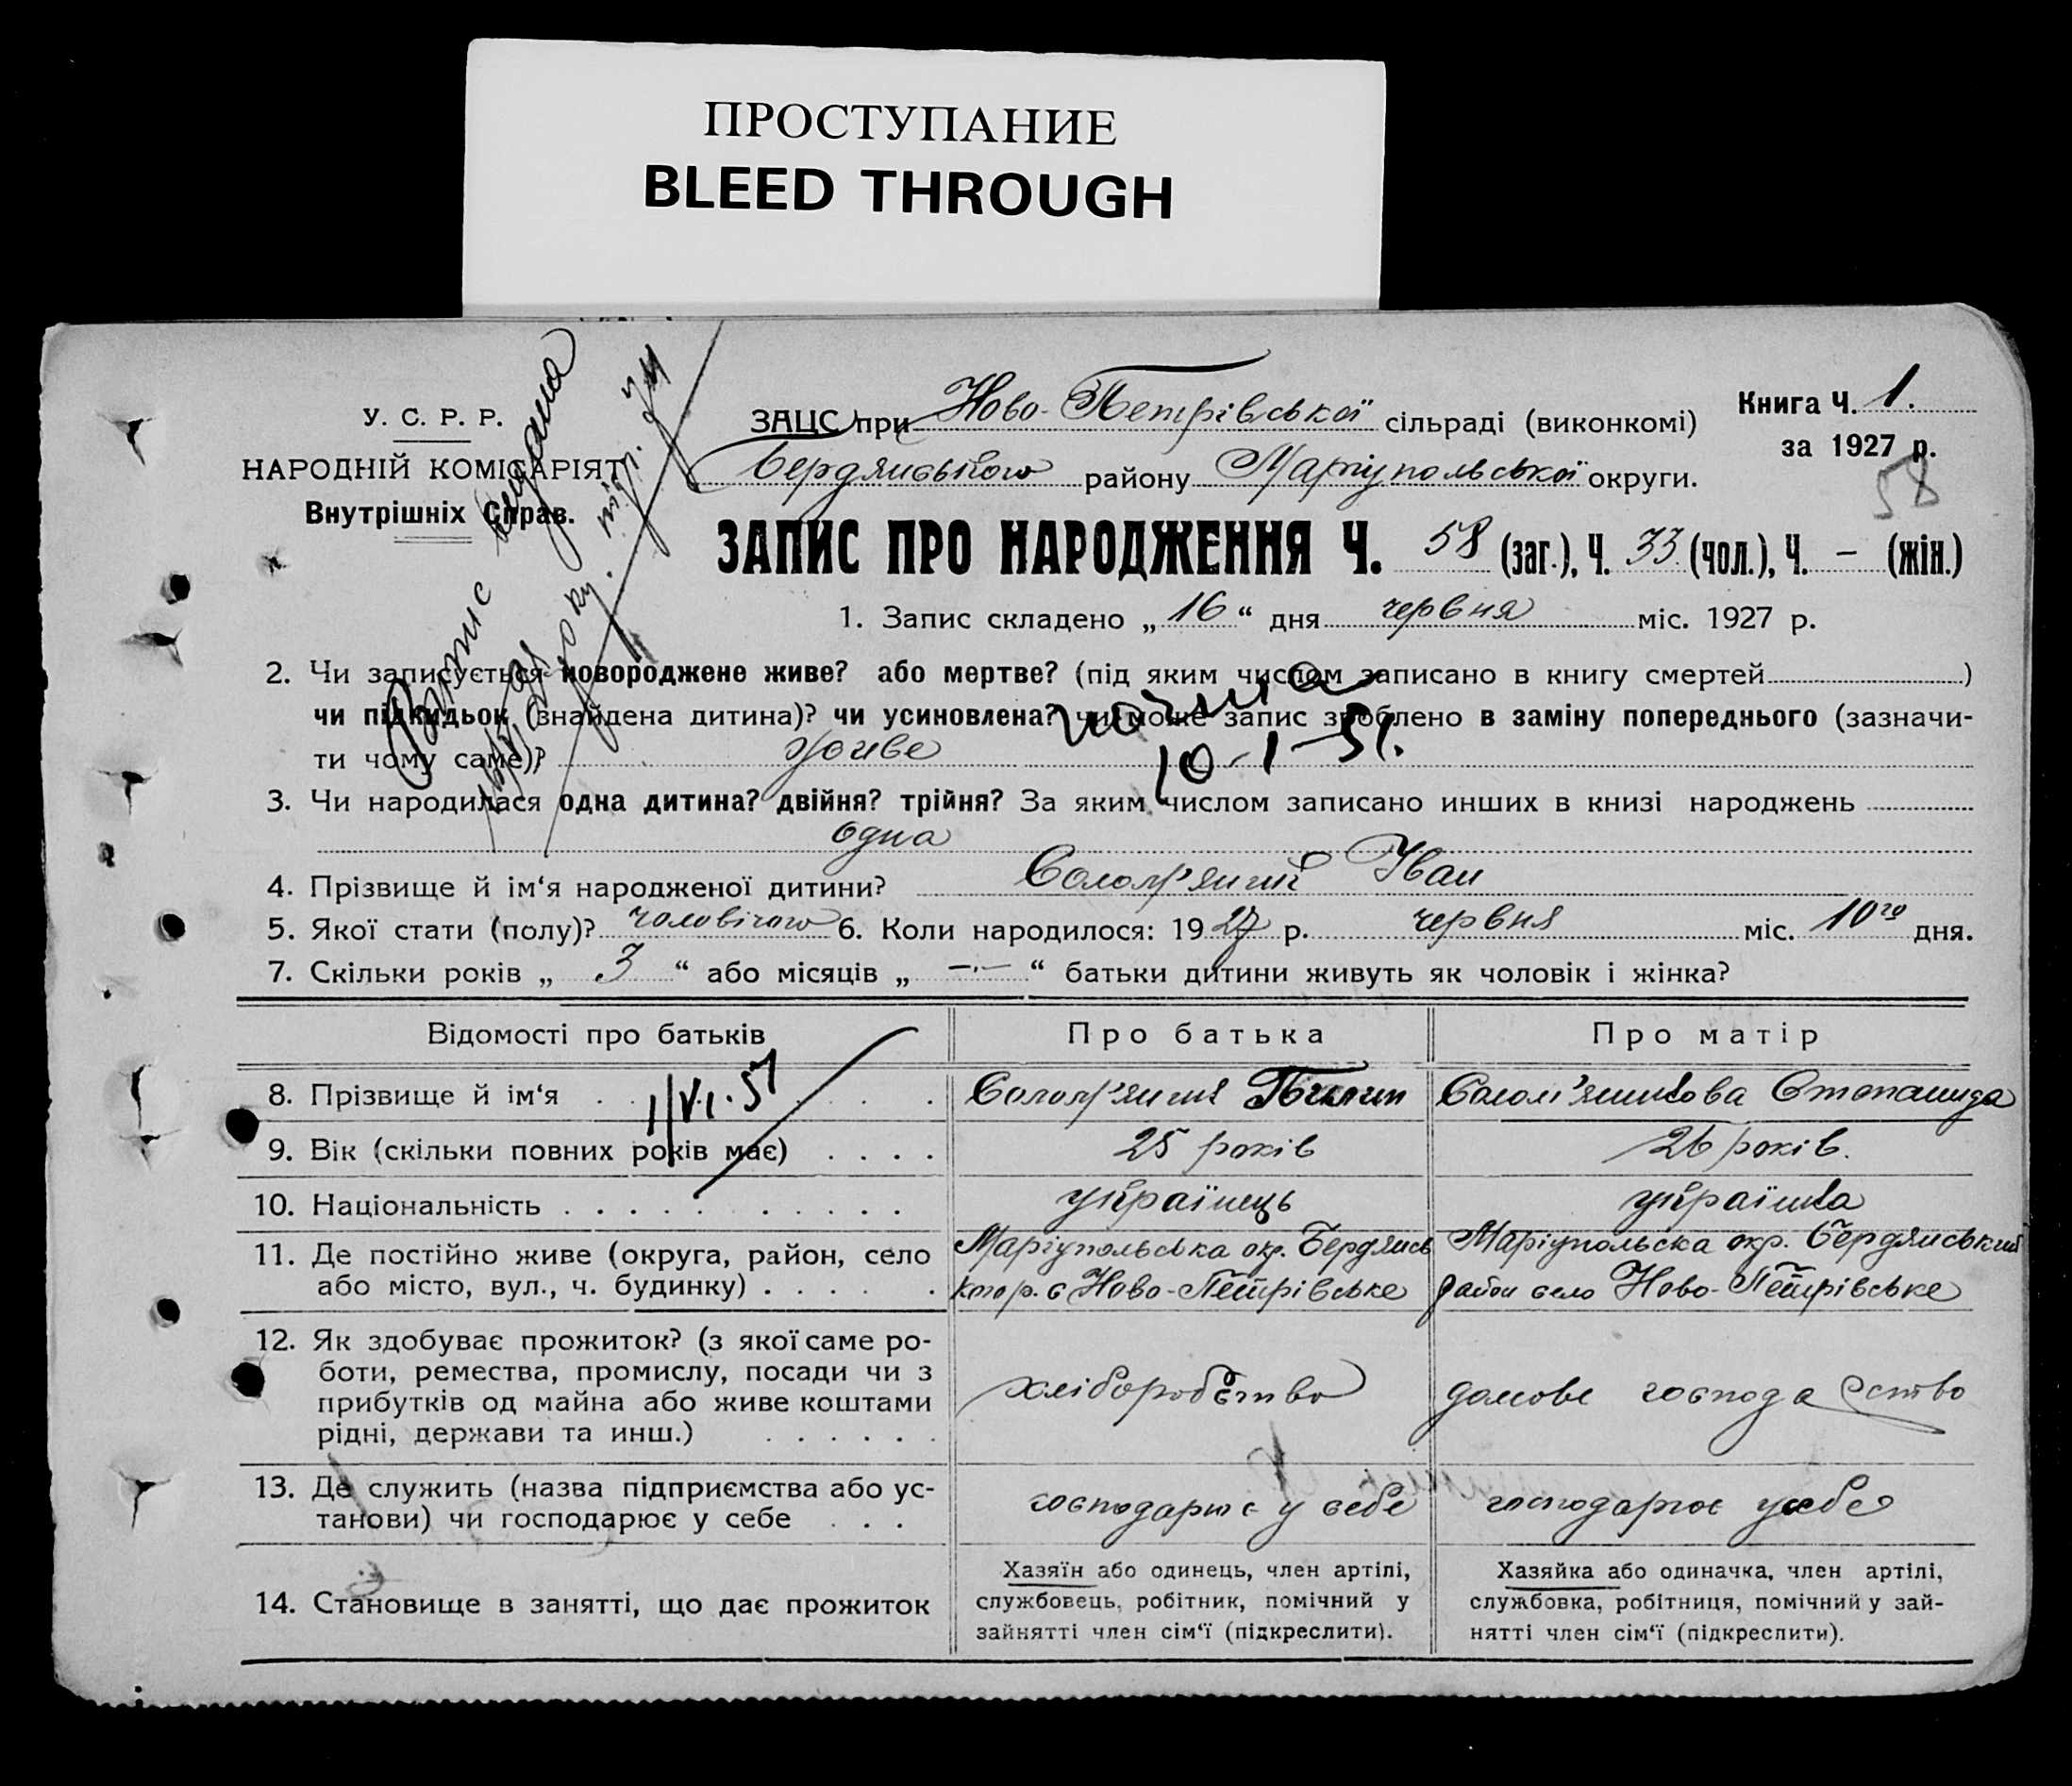 ПРОСТУПАНИЕ
BLEED THROUGH
У. С. Р. Р.
НАРОДНІЙ КОМІСАРІЯТ
Внутрішніх Справ.
Випис видана
ЗАЦС при Ново-Петрівської сільраді (виконкомі)
Бердянського району Маріупольської округи.
Книга Ч. 1.
за 1927 р.
58
ЗАПИС ПРО НАРОДЖЕННЯ Ч. 58 (заг.), Ч. 33 (чол.), Ч. — (жін.)
1. Запис складено „ 16 “ дня червня міс. 1927 р.
2. Чи записується новороджене живе? або мертве? (під яким числом записано в книгу смертей )
чи підкидьок (знайдена дитина)? чи усиновлена? чи може запис зроблено в заміну попереднього (зазначи-
ти чому саме)? живе
10-I-51.
3. Чи народилася одна дитина? двійня? трійня? За яким числом записано инших в книзі народжень
одна
4. Прізвище й ім‘я народженої дитини? Іван
5. Якої стати (полу)? чоловічого 6. Коли народилося: 1927 р. червня міс. 10го дня.
7. Скільки років „ 3 “ або місяців „ —·— “ батьки дитини живуть як чоловік і жінка?
Відомості про батьків Про батька Про матір
8. Прізвище й ім‘я
I/VI.51
9. Вік (скільки повних років має) 25 років 26 років.
10. Національність українець українка
11. Де постійно живе (округа, район, село Маріупольська окр. Бердянсь Маріупольска окр. Бердянський
або місто, вул., ч. будинку) кого р. с Ново-Петрівське район село Ново-Петрівське
12. Як здобуває прожиток? (з якої саме ро-
боти, ремества, промислу, посади чи з
прибутків од майна або живе коштами
рідні, держави та инш.) хліборобство домове господарство
13. Де служить (назва підприємства або ус-
танови) чи господарює у себе господарює у себе господарює у себе
14. Становище в занятті, що дає прожиток
Хазяїн або одинець, член артілі,
службовець, робітник, помічний у
зайнятті член сім‘ї (підкреслити).
Хазяйка або одиначка, член артілі,
службовка, робітниця, помічний у зай-
нятті член сім‘ї (підкреслити).